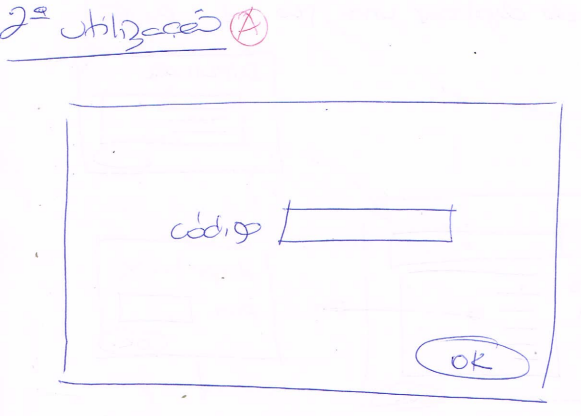 2ª utilização A
código
OK